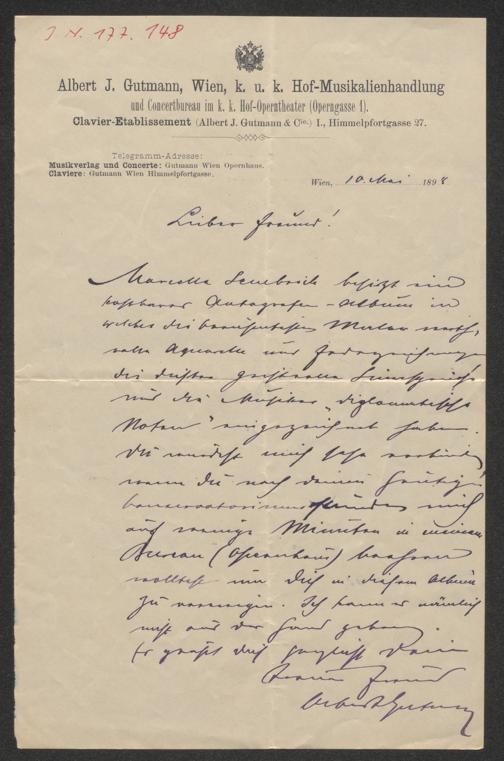 I N. 177.148
Albert J. Gutmann, Wien, k. u. k. Hof-Musikalienhandlung
und Concertbureau im k. k. Hof-Operntheater (Operngasse 1).
Clavier-Etablissement (Albert J. Gutmann & Cie.) I., Himmelpfortgasse 27.
Telegramm-Adresse:
Musikverlag und Concerte: Gutmann Wien Opernhaus.
Claviere: Gutmann Wien Himmelpfortgasse.
Wien, 10. Mai 1898
Lieber Freund!
Marcella Sembrich besitzt ein
kostbares Autografen-Album in
welches die berühmtesten Maler werth-
volle Aquarelle und Federzeichnungen
die Dichter geistvolle Sinnsprüche
und die Musiker "diplomatische
Noten" eingezeichnet haben.
Du würdest mich sehr verbinden
wenn Du nach deinen heutigen
Conservatoriumsstunden mich
auf wenige Minuten in meinem
Bureau (Opernhaus) besuchen
wolltest um Dich in diesem Album
zu verewigen. Ich kann es nämlich
nicht aus der Hand geben.
Es grüßt dich herzlichst Dein
treuer Freund
Albert Gutmann